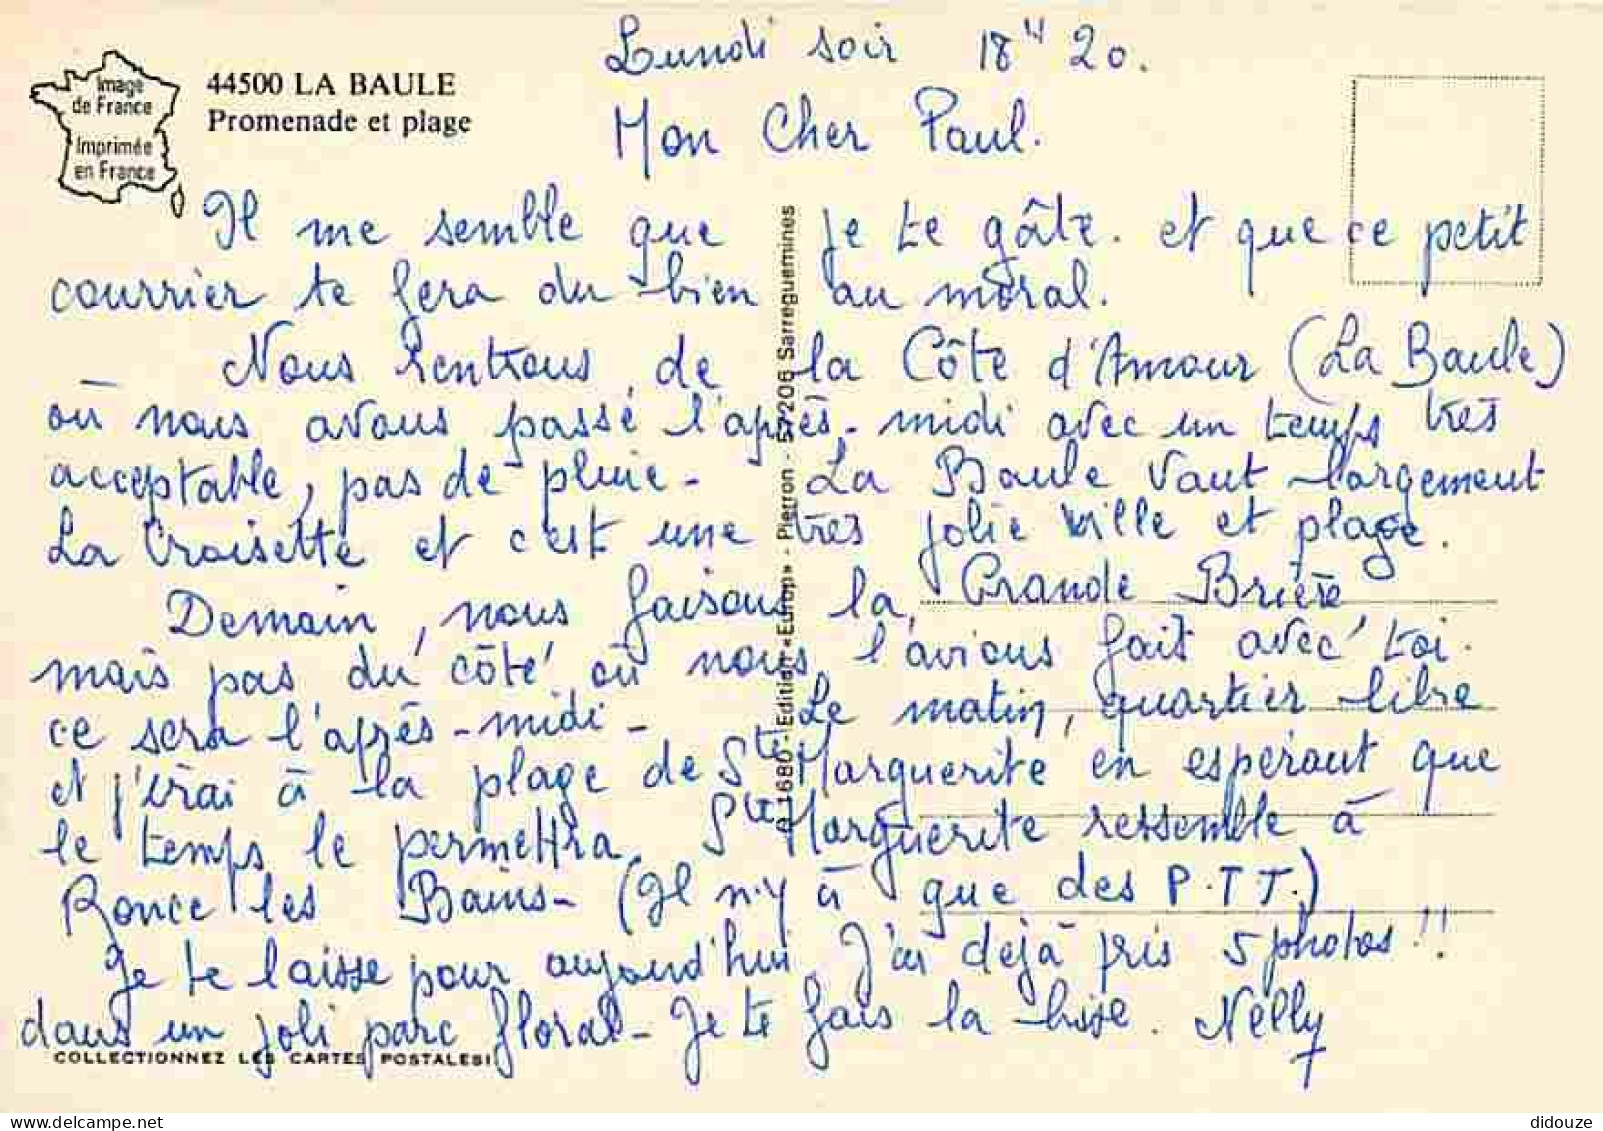 Lundi soir 18H 20.
Image
de France
Imprimée
en France
44500 LA BAULE
Promenade et plage
Mon Cher Paul.
Il me semble que je te gâte. et que ce petit
courrier te fera du bien au moral.
Nous rentrons de la Côte d'Amour (La Baule)
où nous avons passé l'après-midi avec un temps très
acceptable, pas de pluie - La Baule vaut largement
La Croisette et c'est une très jolie ville et plage.
Demain, nous faisons la Grande Brière
mais pas du côté où nous l'avions fait avec toi.
ce sera l'après-midi - Le matin, quartier libre
et j'irai à la plage de Ste Marguerite en espérant que
le temps le permettra. Ste Marguerite ressemble à
Ronce les Bains - (Il n'y a que des P.T.T.)
Je te laisse pour aujourd'hui. J'ai déjà pris 5 photos !!
dans un joli parc floral - Je te fais la bise. Nelly
COLLECTIONNEZ LES CARTES POSTALES!
16680 - Edition «Europ» - Pierron - 57206 Sarreguemines
didouze